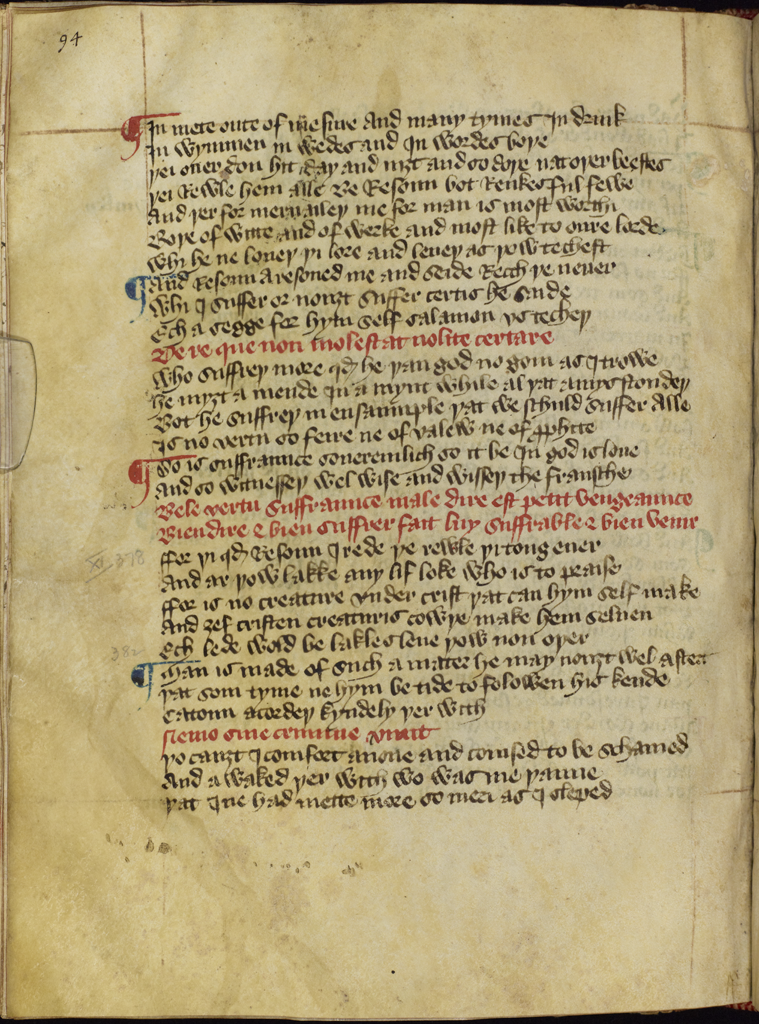 94
¶ In mete oute of mesure And many tymes In drink
In wymmen in wedes and In wordes boþe
þei ouer don hit day and niȝt and so doþ nat oþer beestes
þei Rewle hem alle Be Resoun bot Renkes ful fewe
And þer for meruaileþ me for man is most worth
Boþe of witte and of werke and most like to oure lorde
Whi he ne loueþ þi lore and leueþ as þow techest
¶ And Resoun Aresoned me and seide Rech þe neuer
Whi I suffer or nouȝt suffer certis he saide
Ech a segge for hym self salamon vs techeþ
De re que non molestat nolite certare
Who suffreþ more qd he þan god no gom as I trowe
he myȝt a mende In a mynt while al þat amys stondeþ
Bot he suffreþ in ensaumple þat we schuld suffer Alle
Is no vertu so feire ne of valew ne of profite
¶ So is suffraunce souereinlich so it be In god is loue
And so witnesseþ wel wise and wisseþ the fransche
Bele vertu suffraunce male dire est petit vengeaunce
Bien dire & bien suffrer fait luy suffrable & bien venir
ffor þi qd Resoun I rede þe rewle þi tong euer
And ar þow lakke any lif loke who is to praise
ffor is no creature vnder crist þat can hym self make
And ȝef cristen creaturis cowþe make hem seluen
Ech lede wold be lakles leue þow non oþer
XI 378
382
¶ Man is made of such a mater he may nouȝt wel astert
þat som tyme ne hym be tide to folowen his kende
Catoun acordeþ kyndely þer with
Nemo sine crimine viuit
þo cauȝt I comfort anone and comsed to be schamed
And a waked þer with wo was me þanne
þat I ne had mette more so meri as I sleped